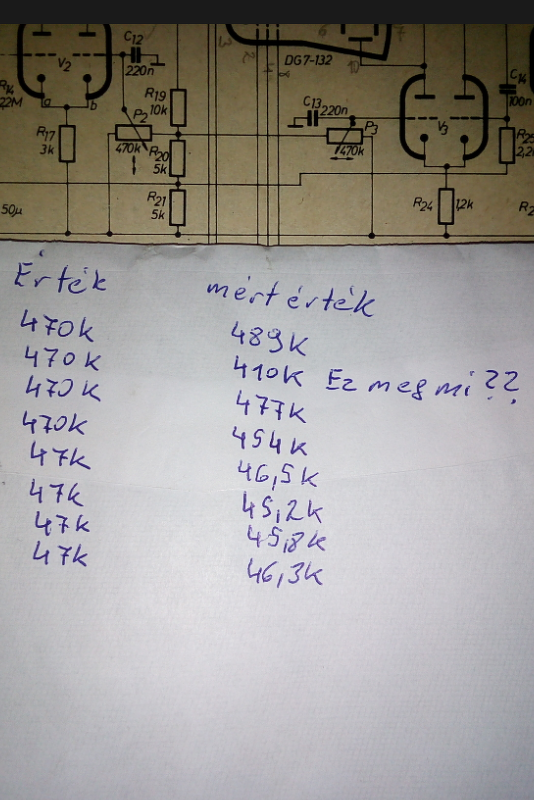 V2
C12
220n
R14
2,2M
a
b
R17
3k
P2
470k
R19
10k
R20
5k
R21
5k
50µ
DG7-132
10
7
C13
220n
P3
470k
V3
C14
100n
R24
1,2k
Érték mért érték
470k 489k
470k 410k Ez meg mi??
470k 477k
470k 454k
47k 46,5k
47k 45,2k
47k 45,8k
47k 46,3k